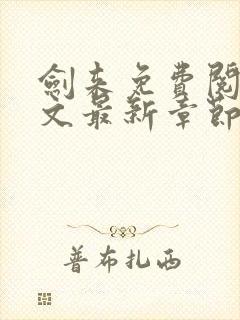 劍来免費閱
文最新章節
普布扎西